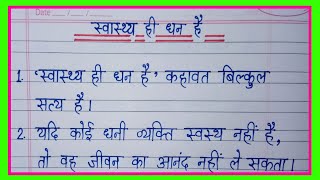 Date __/__/__
स्वास्थ्य ही धन है
1. 'स्वास्थ्य ही धन है' कहावत बिल्कुल
सत्य है।
2. यदि कोई धनी व्यक्ति स्वस्थ नहीं है,
तो वह जीवन का आनंद नहीं ले सकता।